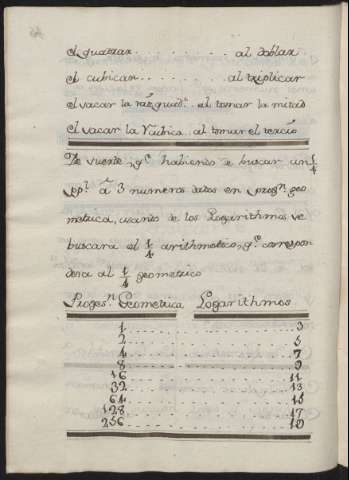 el quadrar . . . . . . . . . . al doblar
el cubicar . . . . . . . . al triplicar
el sacar la raíz quad.ª al tomar la mitad
el sacar la Cubica . al tomar el tercio
De suerte, q.e habiendo de buscar un 1/4
pp.l â 3 numeros dados en progr.n geo
metrica, usando de los Logarithmos se
buscará el 1/4 arithmetico, q.e correspon
dera al 1/4 geometrico
Progres.n Geometrica Logarithmos
1 . . . . . . . . . . 3
2 . . . . . . . . . . 5
4 . . . . . . . . . . 7
8 . . . . . . . . . . 9
16 . . . . . . . . . . 11
32 . . . . . . . . . . 13
64 . . . . . . . . . . 15
128 . . . . . . . . . . 17
256 . . . . . . . . . . 19